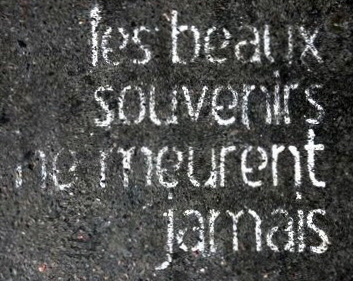 les beaux
souvenirs
ne meurent
jamais